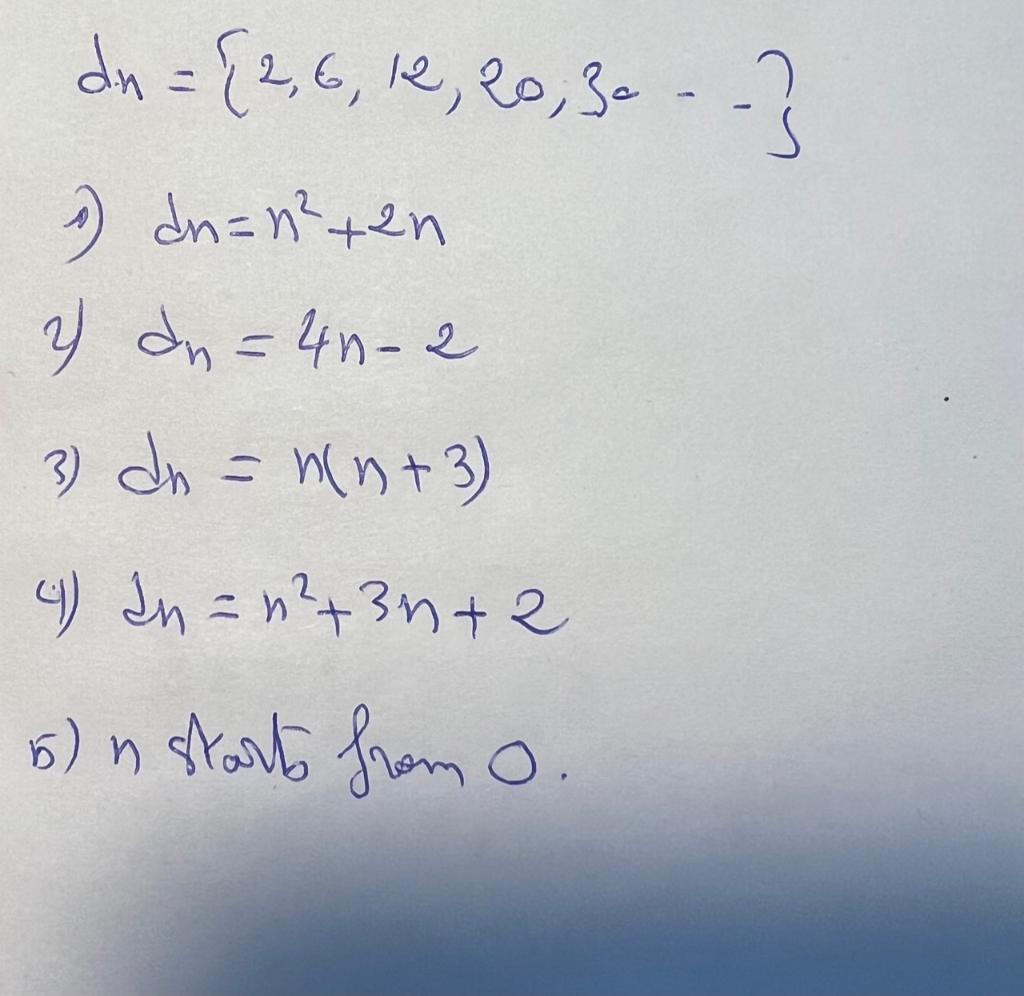 dn = {2, 6, 12, 20, 30 - - }
1) dn = n² + 2n
2) dn = 4n - 2
3) dn = n(n + 3)
4) dn = n² + 3n + 2
5) n starts from 0.